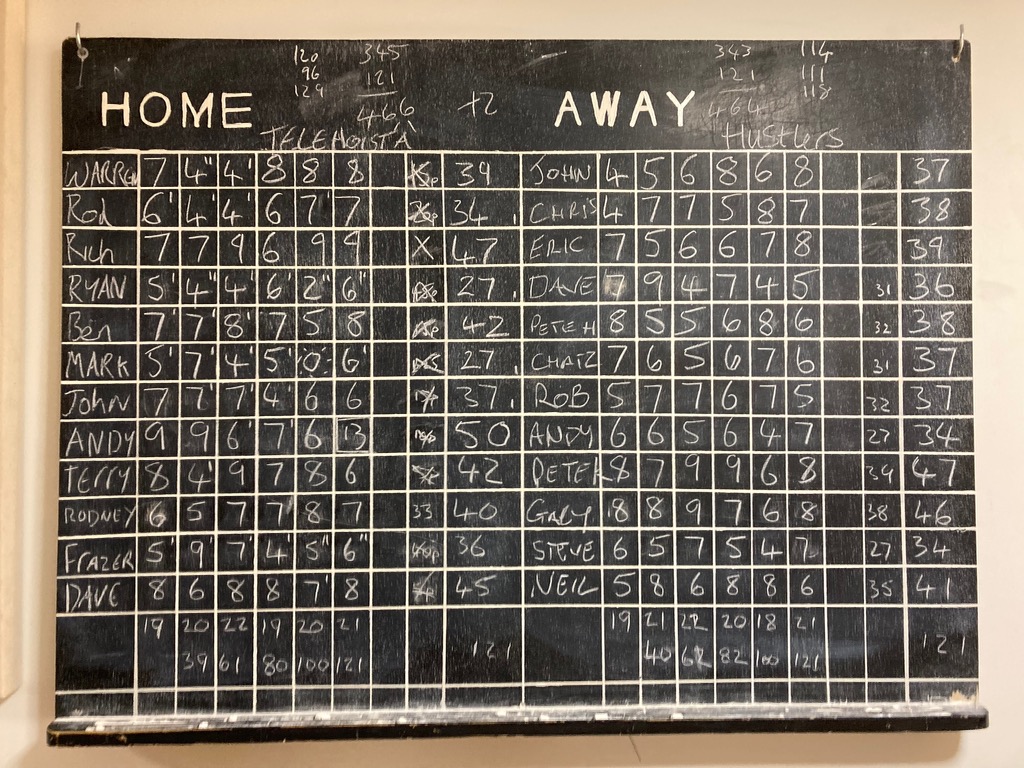 120 345 343 114
96 121 121 111
129 466 +2 464 118
HOME AWAY
Hustlers
WARREN 7 4" 4' 8 8 8 39 JOHN 4 5 6 8 6 8 37
Rod 6' 4' 4' 6 7' 7 34. CHRIS 4 7 7 5 8 7 38
Rich 7 7 9 6 9 9 X 47 ERIC 7 5 6 6 7 8 39
RYAN 5' 4" 4 6' 2" 6' 27. DAVE 7 9 4 7 4 5 31 36
Ben 7' 7' 8' 7 5 8 42 PETE H 8 5 5 6 8 6 32 38
MARK 5' 7' 4' 5' 0: 6' 27. CHATZ 7 6 5 6 7 6 31 37
John 7 7' 7' 4' 6 6 37. ROB 5 7 7 6 7 5 32 37
ANDY 9 9 6' 7' 6 13 50 ANDY 6 6 5 6 4 7 27 34
TERRY 8 4' 9 7 8 6 42 PETER 8 7 9 9 6 8 39 47
RODNEY 6 5 7 7' 8 7 33 40 GARY 8 8 9 7 6 8 38 46
FRAZER 5' 9 7' 4' 5" 6" 36 STEVE 6 5 7 5 4 7 27 34
DAVE 8 6 8 8 7' 8 45 NEIL 5 8 6 8 8 6 35 41
19 20 22 19 20 21 19 21 22 20 18 21
39 61 80 100 121 121 40 62 82 100 121 121